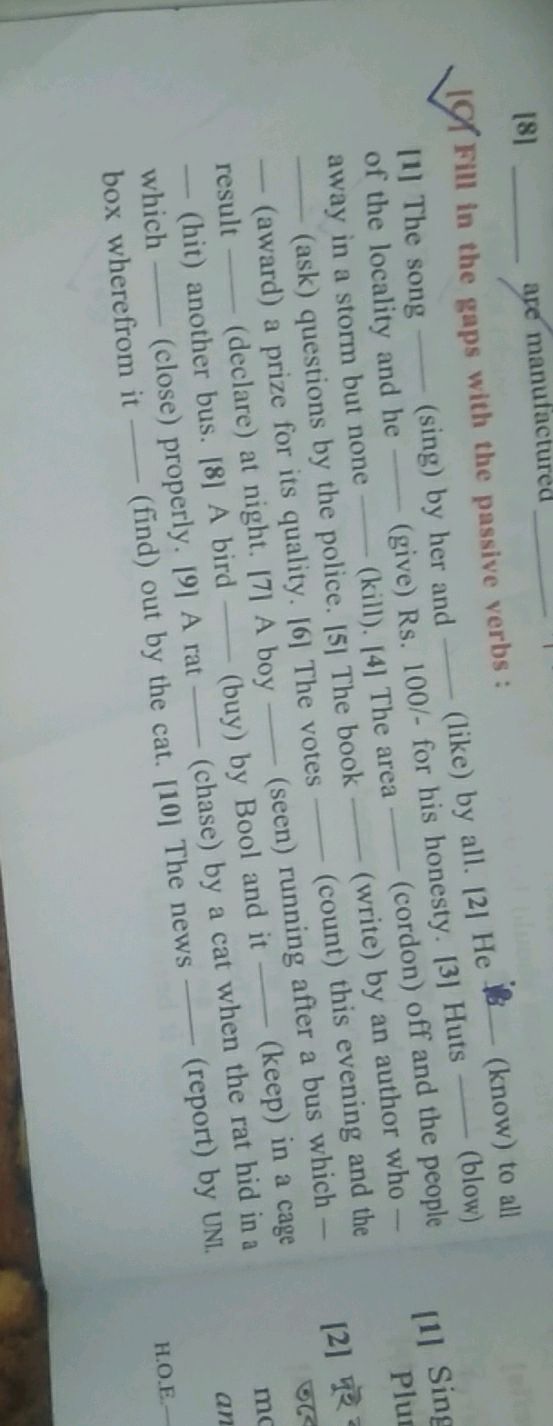 [8] ____ are manufactured ____
[C] Fill in the gaps with the passive verbs :
[1] The song ____ (sing) by her and ____ (like) by all. [2] He is ____ (know) to all
of the locality and he ____ (give) Rs. 100/- for his honesty. [3] Huts ____ (blow)
away in a storm but none ____ (kill). [4] The area ____ (cordon) off and the people
____ (ask) questions by the police. [5] The book ____ (write) by an author who —
— (award) a prize for its quality. [6] The votes ____ (count) this evening and the
result ____ (declare) at night. [7] A boy ____ (seen) running after a bus which —
— (hit) another bus. [8] A bird ____ (buy) by Bool and it ____ (keep) in a cage
which ____ (close) properly. [9] A rat ____ (chase) by a cat when the rat hid in a
box wherefrom it ____ (find) out by the cat. [10] The news ____ (report) by UNI.
[1] Sing
Plur
[2] দুই
H.O.E.—